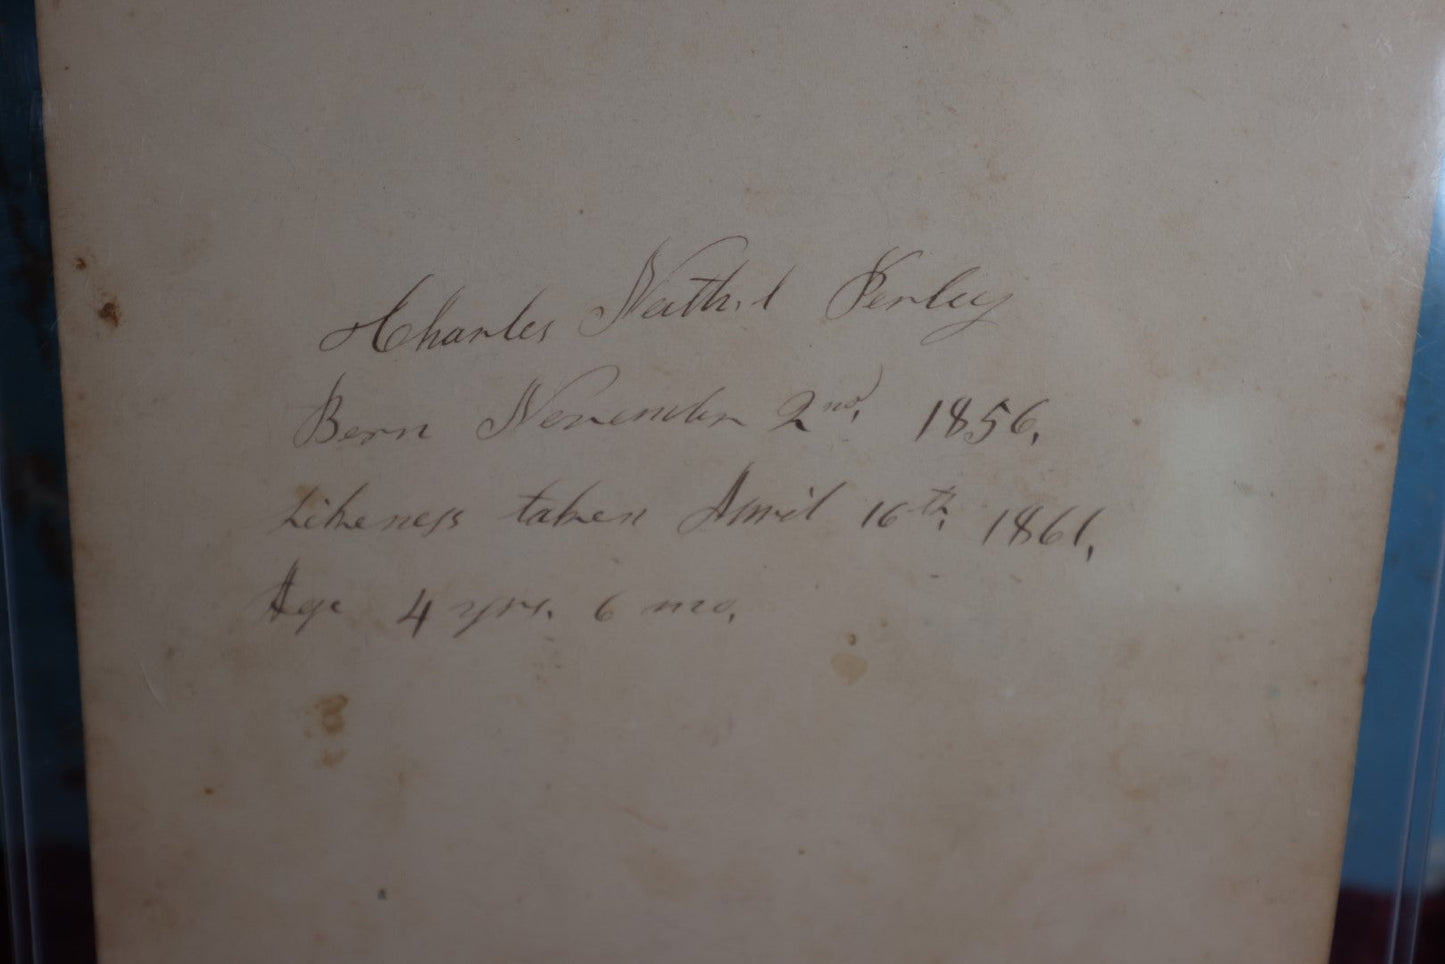 Charles Nath.l Perley
Born November 2nd, 1856,
Likeness taken April 16th, 1861,
Age 4 yrs. 6 mo.